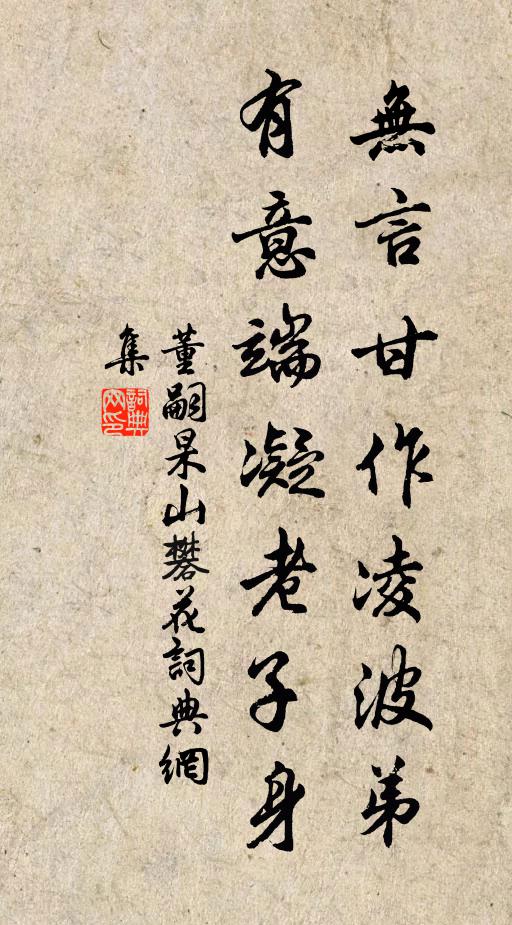 無言甘作凌波弟
有意端凝老子身
董嗣杲山礬花詞典網
集
詞典網印